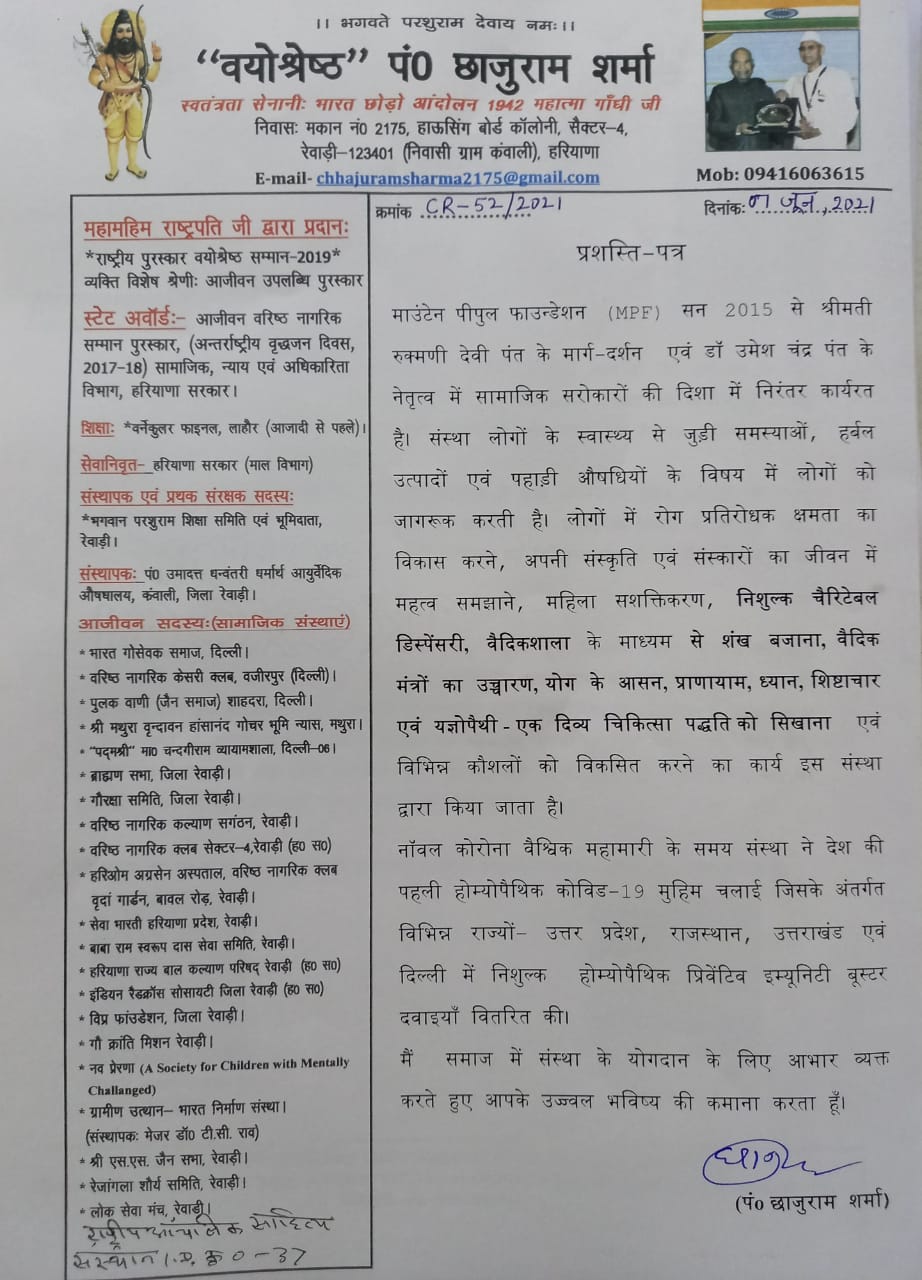 ।। भगवते परशुराम देवाय नमः।।
“वयोश्रेष्ठ” पं0 छाजुराम शर्मा
स्वतंत्रता सेनानीः भारत छोड़ो आंदोलन 1942 महात्मा गाँधी जी
निवासः मकान नं0 2175, हाऊसिंग बोर्ड कॉलोनी, सैक्टर-4,
रेवाड़ी-123401 (निवासी ग्राम कंवाली), हरियाणा
E-mail- chhajuramsharma2175@gmail.com
Mob: 09416063615
क्रमांक CR-52/2021
दिनांकः 01 जून, 2021
महामहिम राष्ट्रपति जी द्वारा प्रदानः
*राष्ट्रीय पुरस्कार वयोश्रेष्ठ सम्मान-2019*
व्यक्ति विशेष श्रेणीः आजीवन उपलब्धि पुरस्कार
स्टेट अवॉर्डः- आजीवन वरिष्ठ नागरिक
सम्मान पुरस्कार, (अन्तर्राष्ट्रीय वृद्धजन दिवस,
2017-18) सामाजिक, न्याय एवं अधिकारिता
विभाग, हरियाणा सरकार।
शिक्षाः *वर्नेकुलर फाइनल, लाहौर (आजादी से पहले)।
सेवानिवृत- हरियाणा सरकार (माल विभाग)
संस्थापक एवं प्रथक संरक्षक सदस्यः
*भगवान परशुराम शिक्षा समिति एवं भूमिदाता,
रेवाड़ी।
संस्थापकः पं0 उमादत्त धन्वंतरी धर्मार्थ आयुर्वेदिक
औषघालय, कंवाली, जिला रेवाड़ी।
आजीवन सदस्यः(सामाजिक संस्थाएं)
* भारत गोसेवक समाज, दिल्ली।
* वरिष्ठ नागरिक केसरी क्लब, वजीरपुर (दिल्ली)।
* पुलक वाणी (जैन समाज) शाहदरा, दिल्ली।
* श्री मथुरा वृन्दावन हांसानंद गोचर भूमि न्यास, मथुरा।
* “पद्मश्री” मा0 चन्दगीराम व्यायामशाला, दिल्ली-06।
* ब्राह्मण सभा, जिला रेवाड़ी।
* गौरक्षा समिति, जिला रेवाड़ी।
* वरिष्ठ नागरिक कल्याण सगंठन, रेवाड़ी।
* वरिष्ठ नागरिक क्लब सेक्टर-4,रेवाड़ी (ह0 स0)
* हरिओम अग्रसेन अस्पताल, वरिष्ठ नागरिक क्लब
वृदां गार्डन, बावल रोड़, रेवाड़ी।
* सेवा भारती हरियाणा प्रदेश, रेवाड़ी।
* बाबा राम स्वरूप दास सेवा समिति, रेवाड़ी।
* हरियाणा राज्य बाल कल्याण परिषद् रेवाड़ी (ह0 स0)
* इंडियन रैडक्रॉस सोसायटी जिला रेवाड़ी (ह0 स0)
* विप्र फांउडेशन, जिला रेवाड़ी।
* गौ क्रांति मिशन रेवाड़ी।
* नव प्रेरणा (A Society for Children with Mentally
Challanged)
* ग्रामीण उत्थान- भारत निर्माण संस्था।
(संस्थापकः मेजर डॉ0 टी.सी. राव)
* श्री एस.एस. जैन सभा, रेवाड़ी।
* रेजांगला शौर्य समिति, रेवाड़ी।
* लोक सेवा मंच, रेवाड़ी।
राष्ट्रीय आंचलिक साहित्य
संस्थान I.D. 0-37
प्रशस्ति-पत्र
माउंटेन पीपुल फाउन्डेशन (MPF) सन 2015 से श्रीमती
रुक्मणी देवी पंत के मार्ग-दर्शन एवं डॉ उमेश चंद्र पंत के
नेतृत्व में सामाजिक सरोकारों की दिशा में निरंतर कार्यरत
है। संस्था लोगों के स्वास्थ्य से जुड़ी समस्याओं, हर्बल
उत्पादों एवं पहाड़ी औषधियों के विषय में लोगों को
जागरूक करती है। लोगों में रोग प्रतिरोधक क्षमता का
विकास करने, अपनी संस्कृति एवं संस्कारों का जीवन में
महत्व समझाने, महिला सशक्तिकरण, निशुल्क चैरिटेबल
डिस्पेंसरी, वैदिकशाला के माध्यम से शंख बजाना, वैदिक
मंत्रों का उच्चारण, योग के आसन, प्राणायाम, ध्यान, शिष्टाचार
एवं यज्ञोपैथी - एक दिव्य चिकित्सा पद्धति को सिखाना एवं
विभिन्न कौशलों को विकसित करने का कार्य इस संस्था
द्वारा किया जाता है।
नॉवल कोरोना वैश्विक महामारी के समय संस्था ने देश की
पहली होम्योपैथिक कोविड-19 मुहिम चलाई जिसके अंतर्गत
विभिन्न राज्यों- उत्तर प्रदेश, राजस्थान, उत्तराखंड एवं
दिल्ली में निशुल्क होम्योपैथिक प्रिवेंटिव इम्यूनिटी बूस्टर
दवाइयाँ वितरित की।
मैं समाज में संस्था के योगदान के लिए आभार व्यक्त
करते हुए आपके उज्ज्वल भविष्य की कमाना करता हूँ।
(पं० छाजुराम शर्मा)